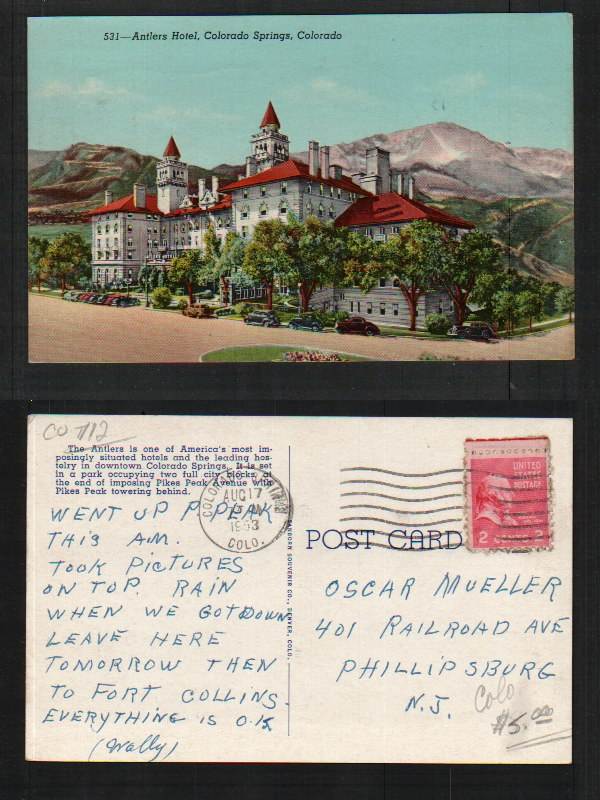 531—Antlers Hotel, Colorado Springs, Colorado
CO 712
The Antlers is one of America's most im-
posingly situated hotels and the leading hos-
telry in downtown Colorado Springs. It is set
in a park occupying two full city blocks, at
the end of imposing Pikes Peak Avenue with
Pikes Peak towering behind.
WENT UP P. PEAK
THIS AM.
TOOK PICTURES
ON TOP. RAIN
WHEN WE GOT DOWN
LEAVE HERE
TOMORROW THEN
TO FORT COLLINS.
EVERYTHING IS O.K
(Wally)
COLORADO
AUG 17
1953
COLO.
SANBORN SOUVENIR CO., DENVER, COLO.
POST CARD
UNITED
STATES
POSTAGE
2 2
OSCAR MUELLER
401 RAILROAD AVE
PHILLIPSBURG
N.J.
Colo
$5.00